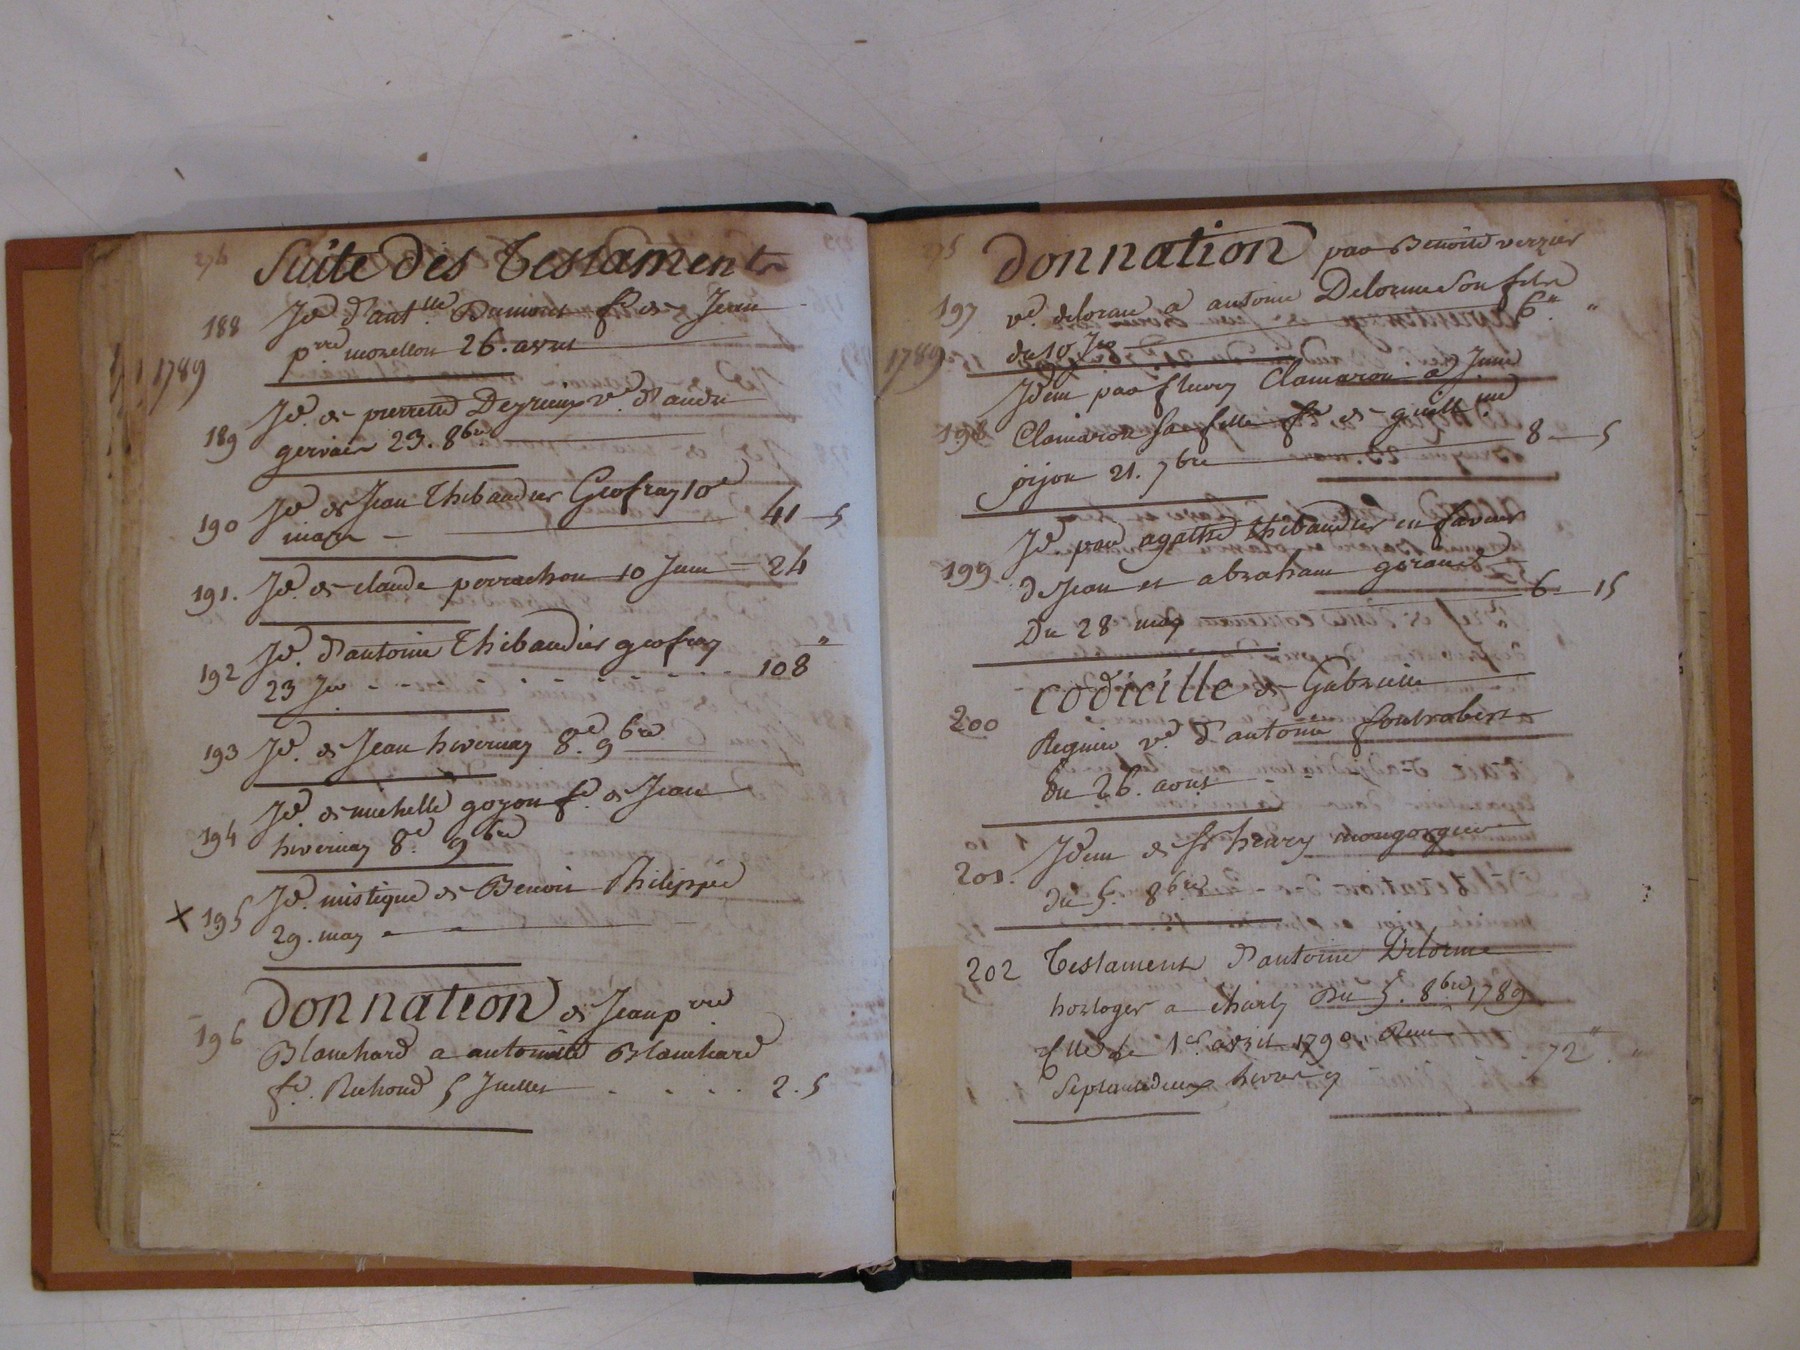 Suite des Testaments
188 Jd. d'ant.lle Dumont fe. de Jean
pre morellon 26. avril
1789
Jd. de pierrette Deyrieux ve. d'andré
189 gervais 23. 8bre
Jd. de Jean Thibaudier Geofray 10e
190 mars 41 5
191. Jd. de claude perrachon 10 Juin = 24
Jd. d'antoine Thibaudier geofray
192 23 Jer 108 "
193 Jd. de Jean hivernay 8.e 9bre
Jd. de michelle goyon fe. de Jean
194 hivernay 8.e 9bre
Jd. mistique de Benoit Philippe
X 195 29. may
Donnation de Jean pre
196 Blanchard a antoinette Blanchard
fe. Richoud 5 Juillet 2. 5
Donnation par Benoite verzier
197 ve. delorme a antoine Delorme Son fils
du 10 Jer 6 " "
1789
Jdem par fleury Clamaron a Jeanne
198 Clamaron Sa fille fe. de guillme
pijon 21. 7bre 8 5
Jd. par agathe thibaudier en faveur
199 de Jean et abraham
Du 28 may 6 15
Codicille de Gabrielle
200 Regnier ve. d'antoine fontrobert
Du 26. aout
Jdem de Sr henry mongorgier
201. du 5. 8bre
202 Testament d'antoine Delorme
horloger a Charly Du 5. 8bre 1789
le 1er avril 1790. Reçu
Septantedeux livres 72 "